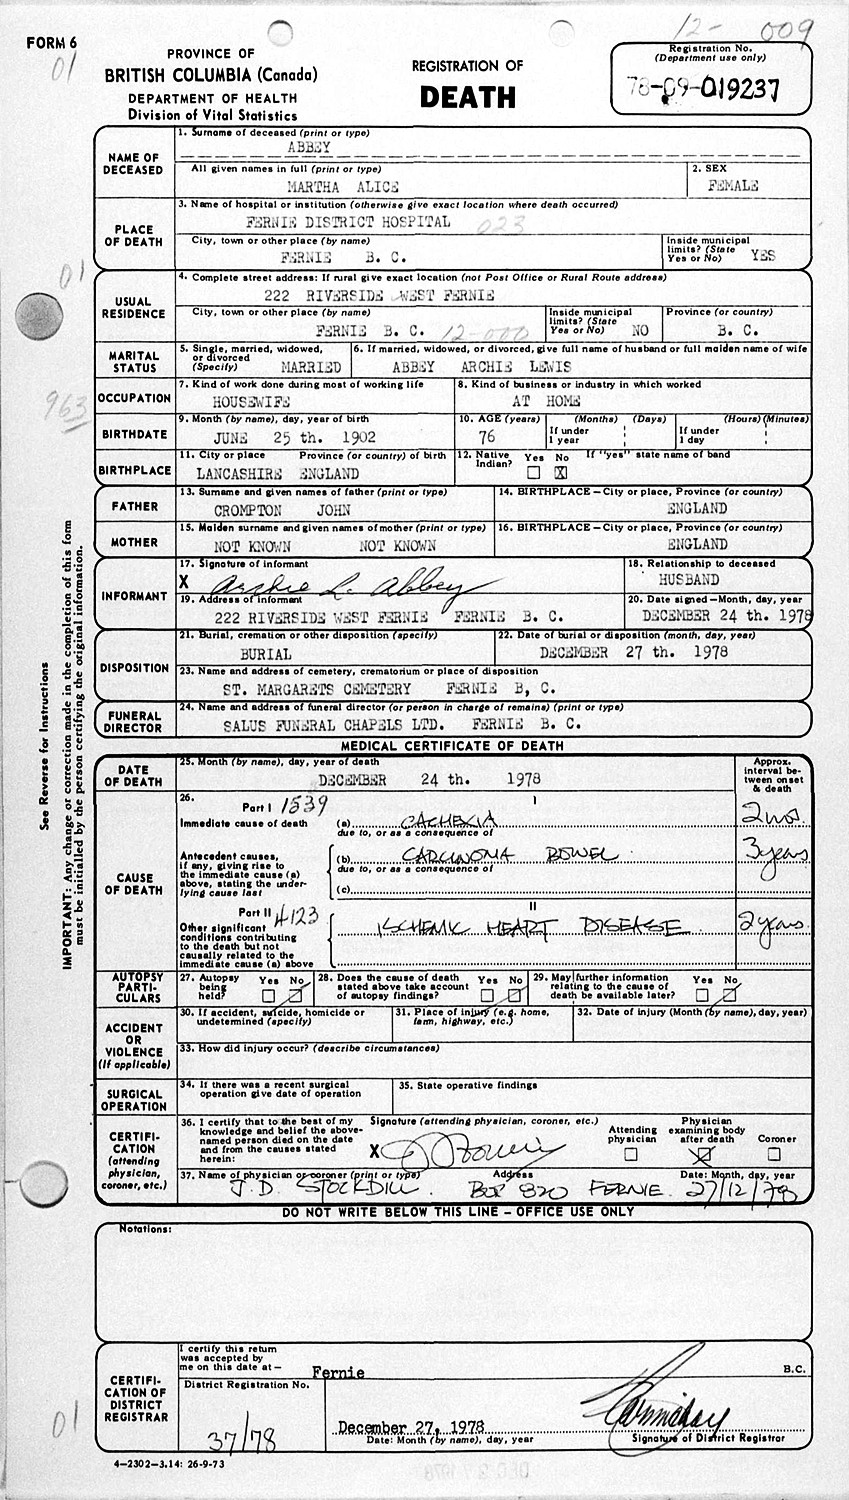 FORM 6
01
12- 009
PROVINCE OF
BRITISH COLUMBIA (Canada)
DEPARTMENT OF HEALTH
Division of Vital Statistics
REGISTRATION OF
DEATH
Registration No.
(Department use only)
78-09-019237
NAME OF
DECEASED
1. Surname of deceased (print or type)
ABBEY
All given names in full (print or type)
MARTHA ALICE
2. SEX
FEMALE
PLACE
OF DEATH
3. Name of hospital or institution (otherwise give exact location where death occurred)
FERNIE DISTRICT HOSPITAL 023
City, town or other place (by name)
FERNIE B. C.
Inside municipal
limits? (State
Yes or No) YES
01
USUAL
RESIDENCE
4. Complete street address: If rural give exact location (not Post Office or Rural Route address)
222 RIVERSIDE WEST FERNIE
City, town or other place (by name)
FERNIE B. C. 12-000
Inside municipal
limits? (State
Yes or No) NO
Province (or country)
B. C.
MARITAL
STATUS
5. Single, married, widowed,
or divorced
(Specify) MARRIED
6. If married, widowed, or divorced, give full name of husband or full maiden name of wife
ABBEY ARCHIE LEWIS
963
OCCUPATION
7. Kind of work done during most of working life
HOUSEWIFE
8. Kind of business or industry in which worked
AT HOME
BIRTHDATE
9. Month (by name), day, year of birth
JUNE 25 th. 1902
10. AGE (years)
76
(Months) (Days)
If under
1 year
(Hours) (Minutes)
If under
1 day
BIRTHPLACE
11. City or place Province (or country) of birth
LANCASHIRE ENGLAND
12. Native
Indian?
Yes No
X
If "yes" state name of band
FATHER
13. Surname and given names of father (print or type)
CROMPTON JOHN
14. BIRTHPLACE – City or place, Province (or country)
ENGLAND
MOTHER
15. Maiden surname and given names of mother (print or type)
NOT KNOWN NOT KNOWN
16. BIRTHPLACE – City or place, Province (or country)
ENGLAND
INFORMANT
17. Signature of informant
X Archie L. Abbey
18. Relationship to deceased
HUSBAND
19. Address of informant
222 RIVERSIDE WEST FERNIE FERNIE B. C.
20. Date signed – Month, day, year
DECEMBER 24 th. 1978
DISPOSITION
21. Burial, cremation or other disposition (specify)
BURIAL
22. Date of burial or disposition (month, day, year)
DECEMBER 27 th. 1978
23. Name and address of cemetery, crematorium or place of disposition
ST. MARGARETS CEMETERY FERNIE B, C.
FUNERAL
DIRECTOR
24. Name and address of funeral director (or person in charge of remains) (print or type)
SALUS FUNERAL CHAPELS LTD. FERNIE B. C.
See Reverse for Instructions
IMPORTANT: Any change or correction made in the completion of this form
must be initialled by the person certifying the original information.
MEDICAL CERTIFICATE OF DEATH
DATE
OF DEATH
25. Month (by name), day, year of death
DECEMBER 24 th. 1978
Approx.
interval be-
tween onset
& death
CAUSE
OF DEATH
26.
Part I 1539
I
Immediate cause of death
(a) CACHEXIA
2 mos.
due to, or as a consequence of
Antecedent causes,
if any, giving rise to
the immediate cause (a)
above, stating the under-
lying cause last
(b) CARCINOMA BOWEL
3 years
due to, or as a consequence of
(c)
Part II 4123
II
Other significant
conditions contributing
to the death but not
causally related to the
immediate cause (a) above
ISCHEMIC HEART DISEASE
2 years.
AUTOPSY
PARTI-
CULARS
27. Autopsy
being
held?
Yes No
28. Does the cause of death
stated above take account
of autopsy findings?
Yes No
29. May further information
relating to the cause of
death be available later?
Yes No
ACCIDENT
OR
VIOLENCE
(If applicable)
30. If accident, suicide, homicide or
undetermined (specify)
31. Place of injury (e.g. home,
farm, highway, etc.)
32. Date of injury (Month (by name), day, year)
33. How did injury occur? (describe circumstances)
SURGICAL
OPERATION
34. If there was a recent surgical
operation give date of operation
35. State operative findings
CERTIFI-
CATION
(attending
physician,
coroner, etc.)
36. I certify that to the best of my
knowledge and belief the above-
named person died on the date
and from the causes stated
herein:
Signature (attending physician, coroner, etc.)
X
Attending
physician
Physician
examining body
after death
Coroner
37. Name of physician or coroner (print or type)
J. D. STOCKDILL.
Address
BOX 820 FERNIE.
Date: Month, day, year
27/12/78
DO NOT WRITE BELOW THIS LINE – OFFICE USE ONLY
Notations:
01
CERTIFI-
CATION OF
DISTRICT
REGISTRAR
I certify this return
was accepted by
me on this date at – Fernie
B.C.
District Registration No.
37/78
December 27, 1978
Date: Month (by name), day, year
Signature of District Registrar
4–2302–3.14: 26-9-73